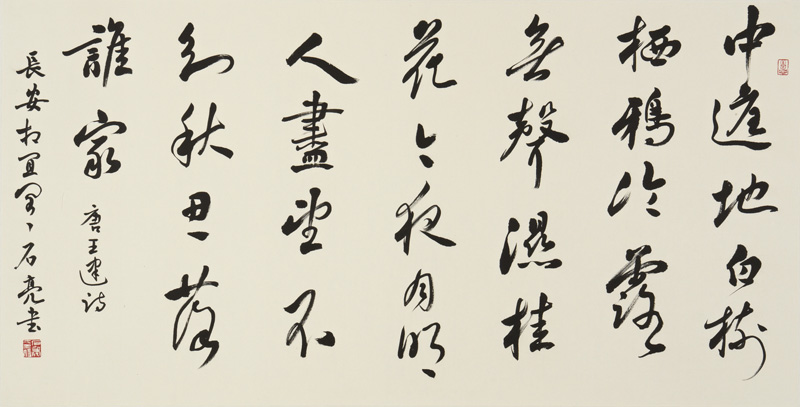 中庭地白樹
栖鴉冷露
無聲濕桂
花今夜月明
人盡望不
知秋思落
誰家
唐王建詩
長安相宜閣石亮書